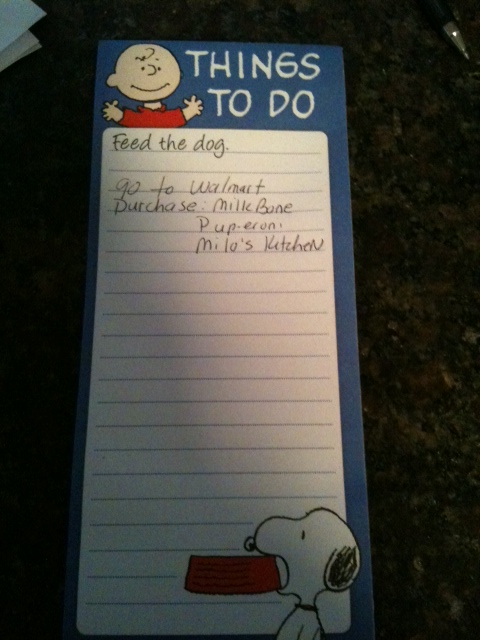 THINGS
TO DO
Feed the dog.
go to Walmart
purchase: MilkBone
Pup-eroni
Milo's KitcheN